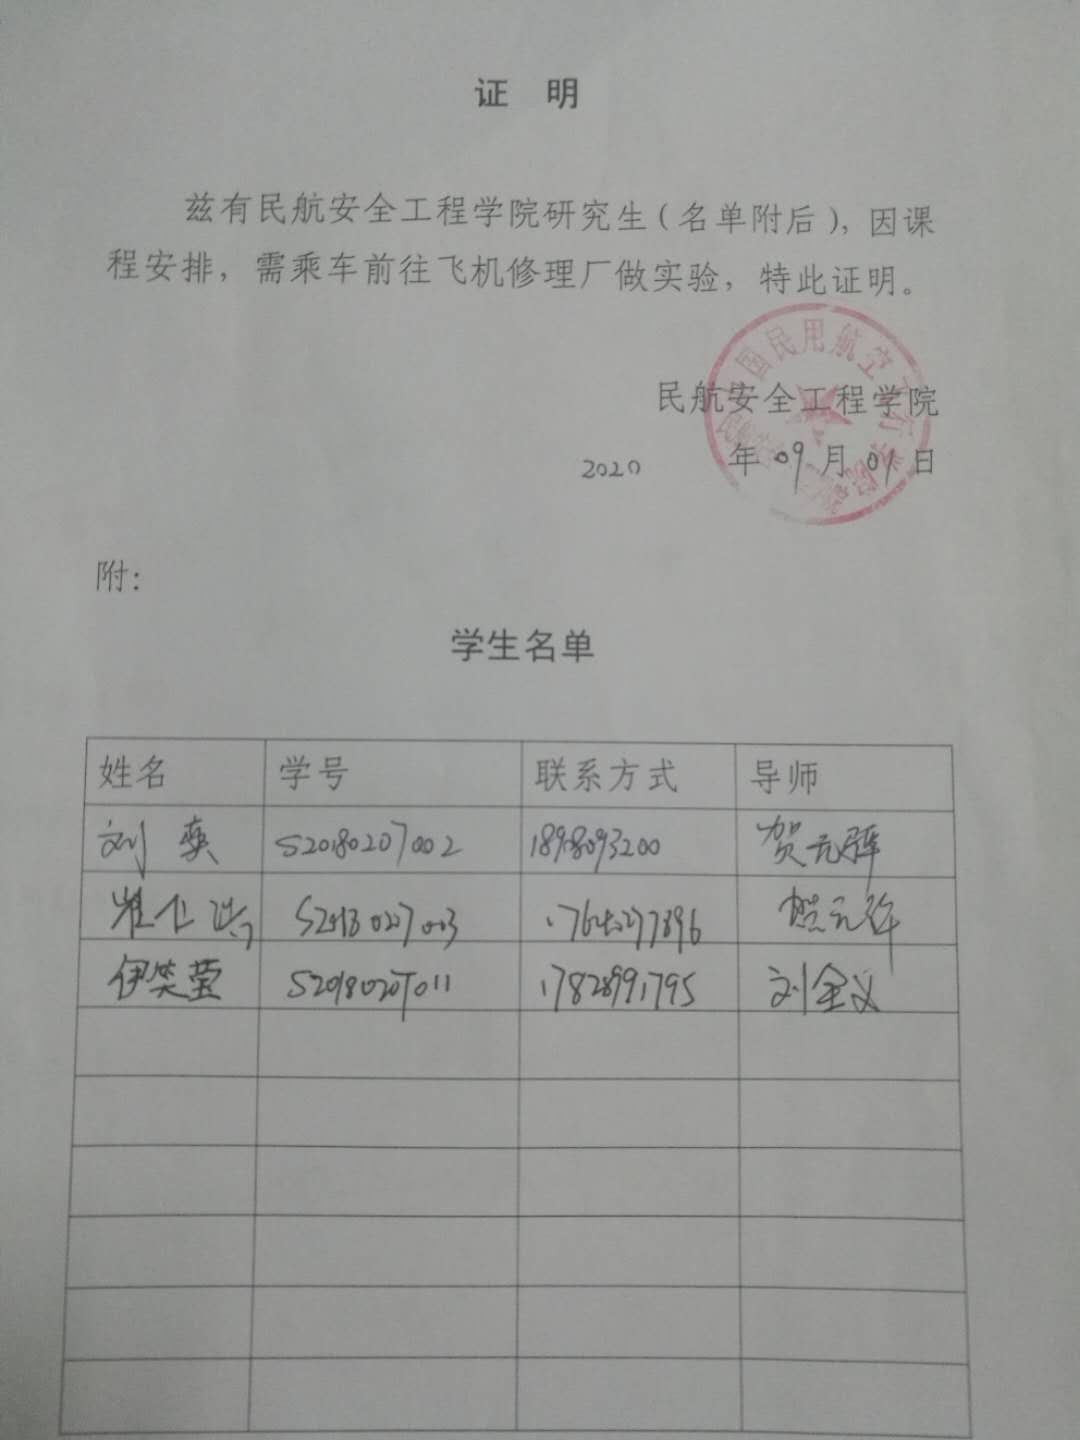 证 明
兹有民航安全工程学院研究生(名单附后),因课
程安排,需乘车前往飞机修理厂做实验,特此证明。
民航安全工程学院
2020 年 09 月 01 日
附:
学生名单
姓名 学号 联系方式 导师
刘 S20180207002 1898093200 贺元骅
S20180207003 贺元骅
伊笑莹 S20180207011 17828991795 刘全义